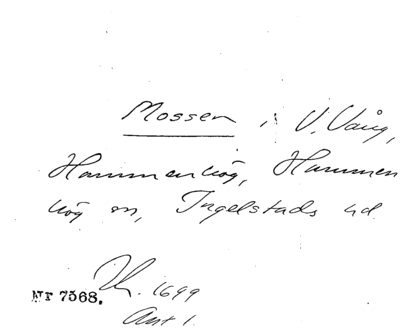 Mossen i V. Vång,
Hammenhög, Hammen
hög sn, Ingelstads hd
Nr 7568. 1699
Akt 1.